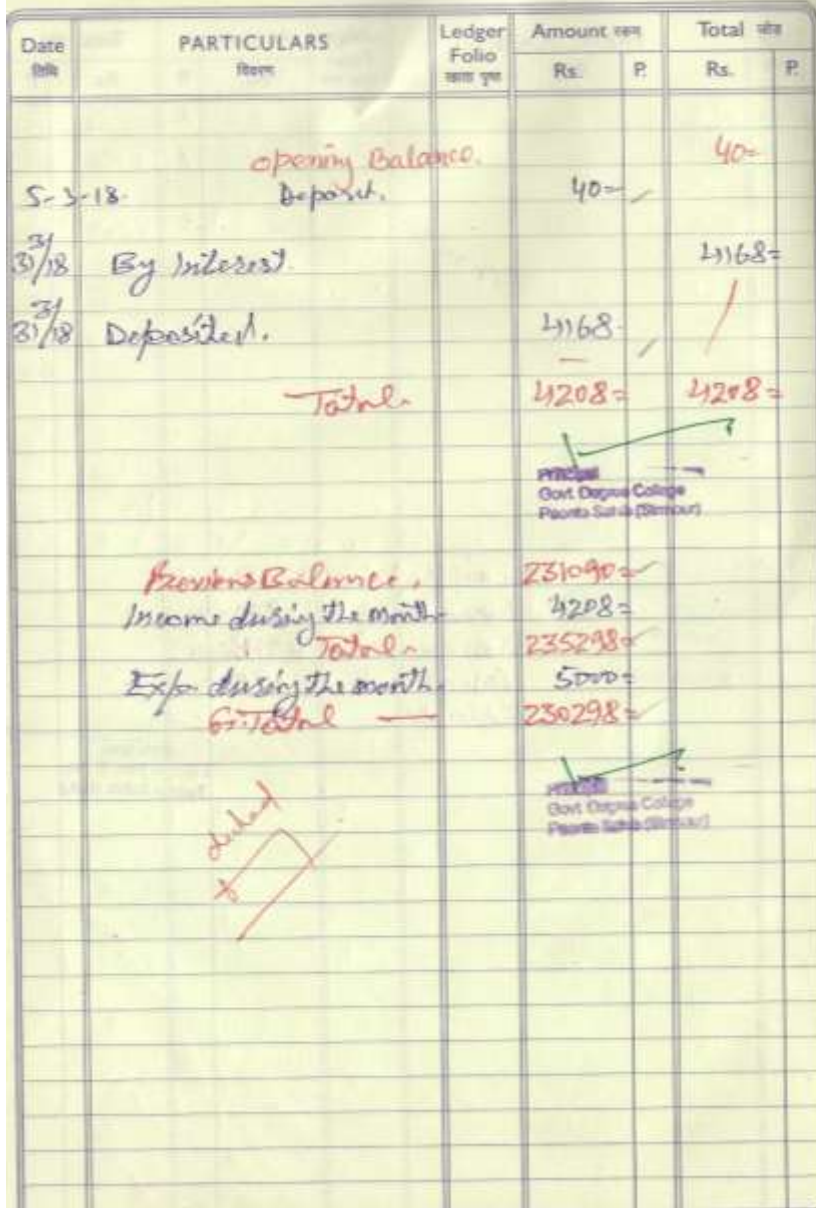 Date PARTICULARS Ledger Folio Amount रकम Total जोड़
तिथि विवरण खाता पृष्ठ Rs. P. Rs. P.
Opening Balance. 40=
5-3-18. Deposit. 40=
31/3/18 By Interest 4168=
31/3/18 Deposited. 4168-
Total- 4208= 4208=
Principal
Govt. Degree College
Paonta Sahib (Sirmour)
Previous Balance. 231090=
Income during the month- 4208=
Total- 235298=
Exp. during the month. 5000=
G.Total — 230298=
Principal
Govt. Degree College
Paonta Sahib (Sirmour)